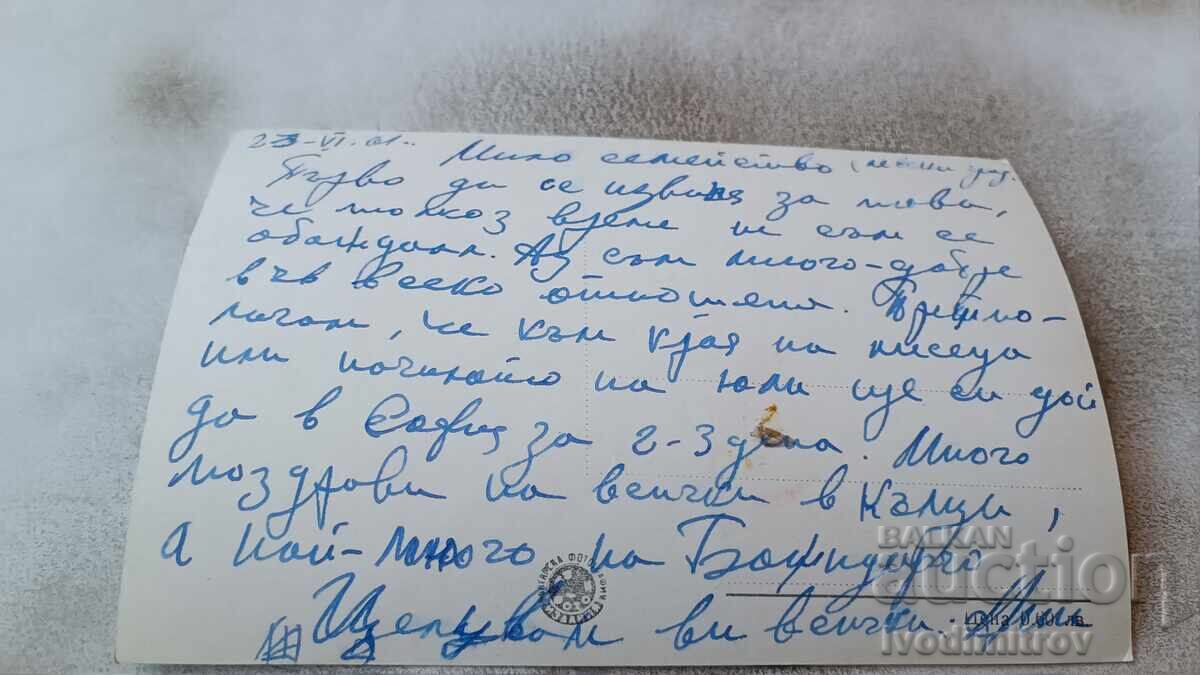 23-VI.61.
Мило семейство
Първо да се извиня за това,
че толкоз време не съм се
обаждал. Аз съм много-добре
във всяко отношение. Предпо-
лагам, че към края на месеца
или началото на юли ще си дой
да в София за 2-3 дена. Много
поздрави на всички в къщи,
а най-много на Божидарчо
Целувам ви всички.
БЪЛГАРСКА ФОТОГРАФИЯ
Цена 0.60 лв.
BALKAN
auction
ivodimitrov